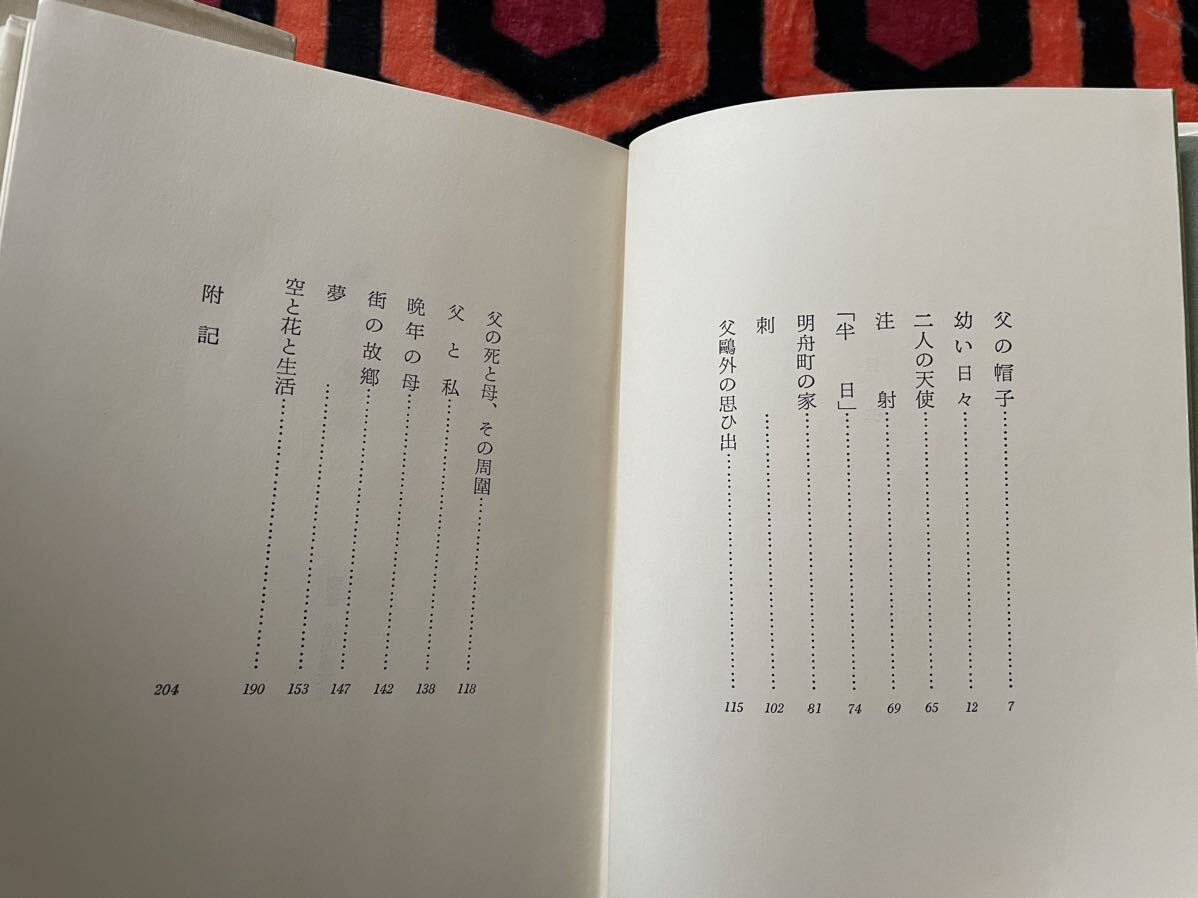 父の帽子……7
幼い日々……12
二人の天使……65
注射……69
「半日」……74
明舟町の家……81
刺……102
父鷗外の思ひ出……115
父の死と母、その周圍……118
父と私……138
晩年の母……142
街の故鄕……147
夢……153
空と花と生活……190
附記 204